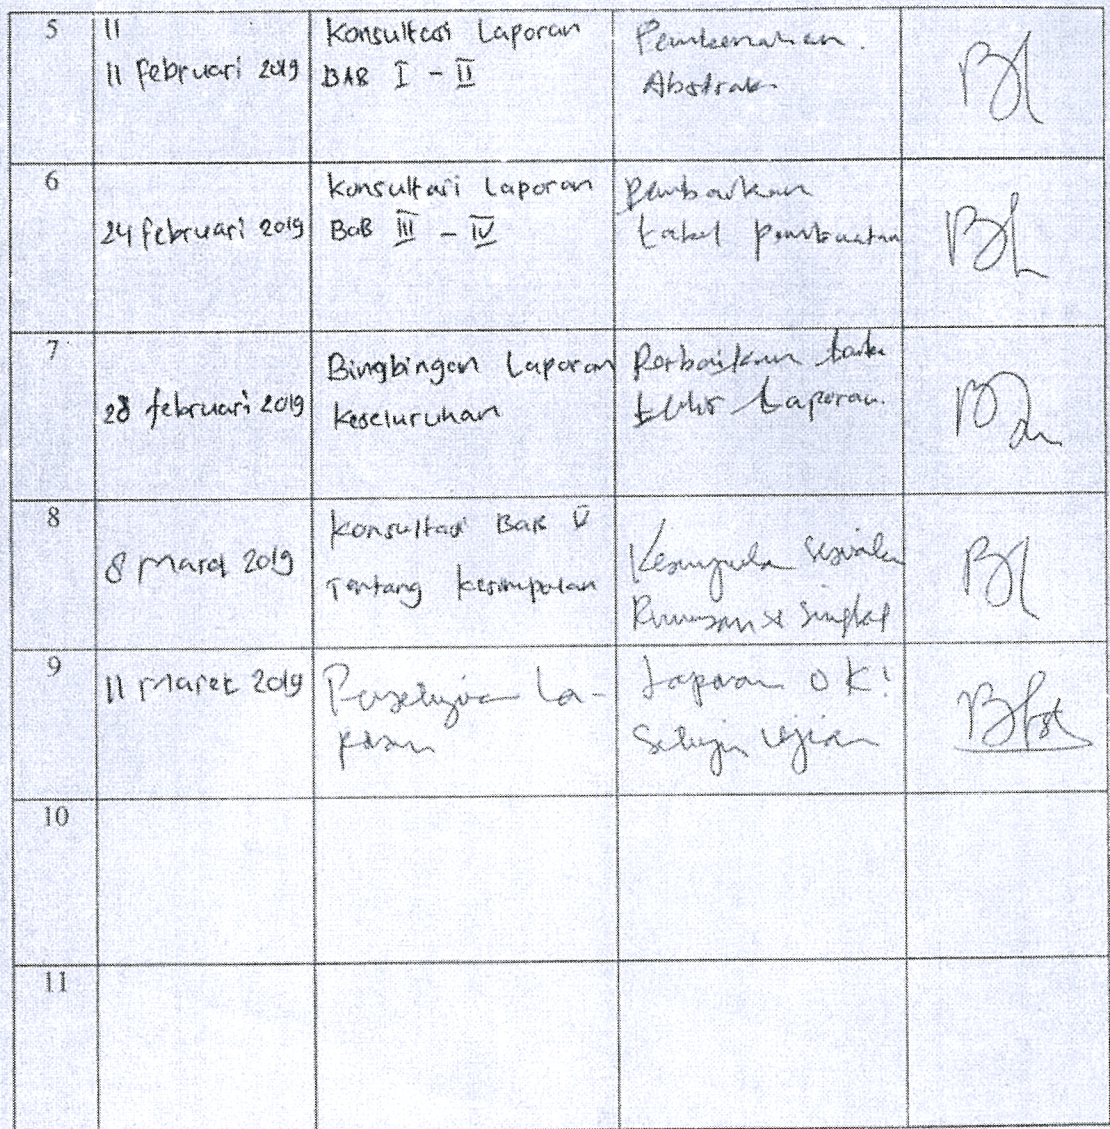 5
11
11 februari 2019
Konsultasi Laporan
BAB I - II
Pembenahan
Abstrak
6
24 februari 2019
Konsultasi Laporan
BaB III - IV
Pembuatan
7
28 februari 2019
Bingbingan Laporan
Keseluruhan
Perbaikan
Laporan
8
8 Maret 2019
Konsultasi BaB V
Tentang kesimpulan
9
11 Maret 2019
Persetujuan La-
poran
Laporan OK!
Setuju ujian
10
11